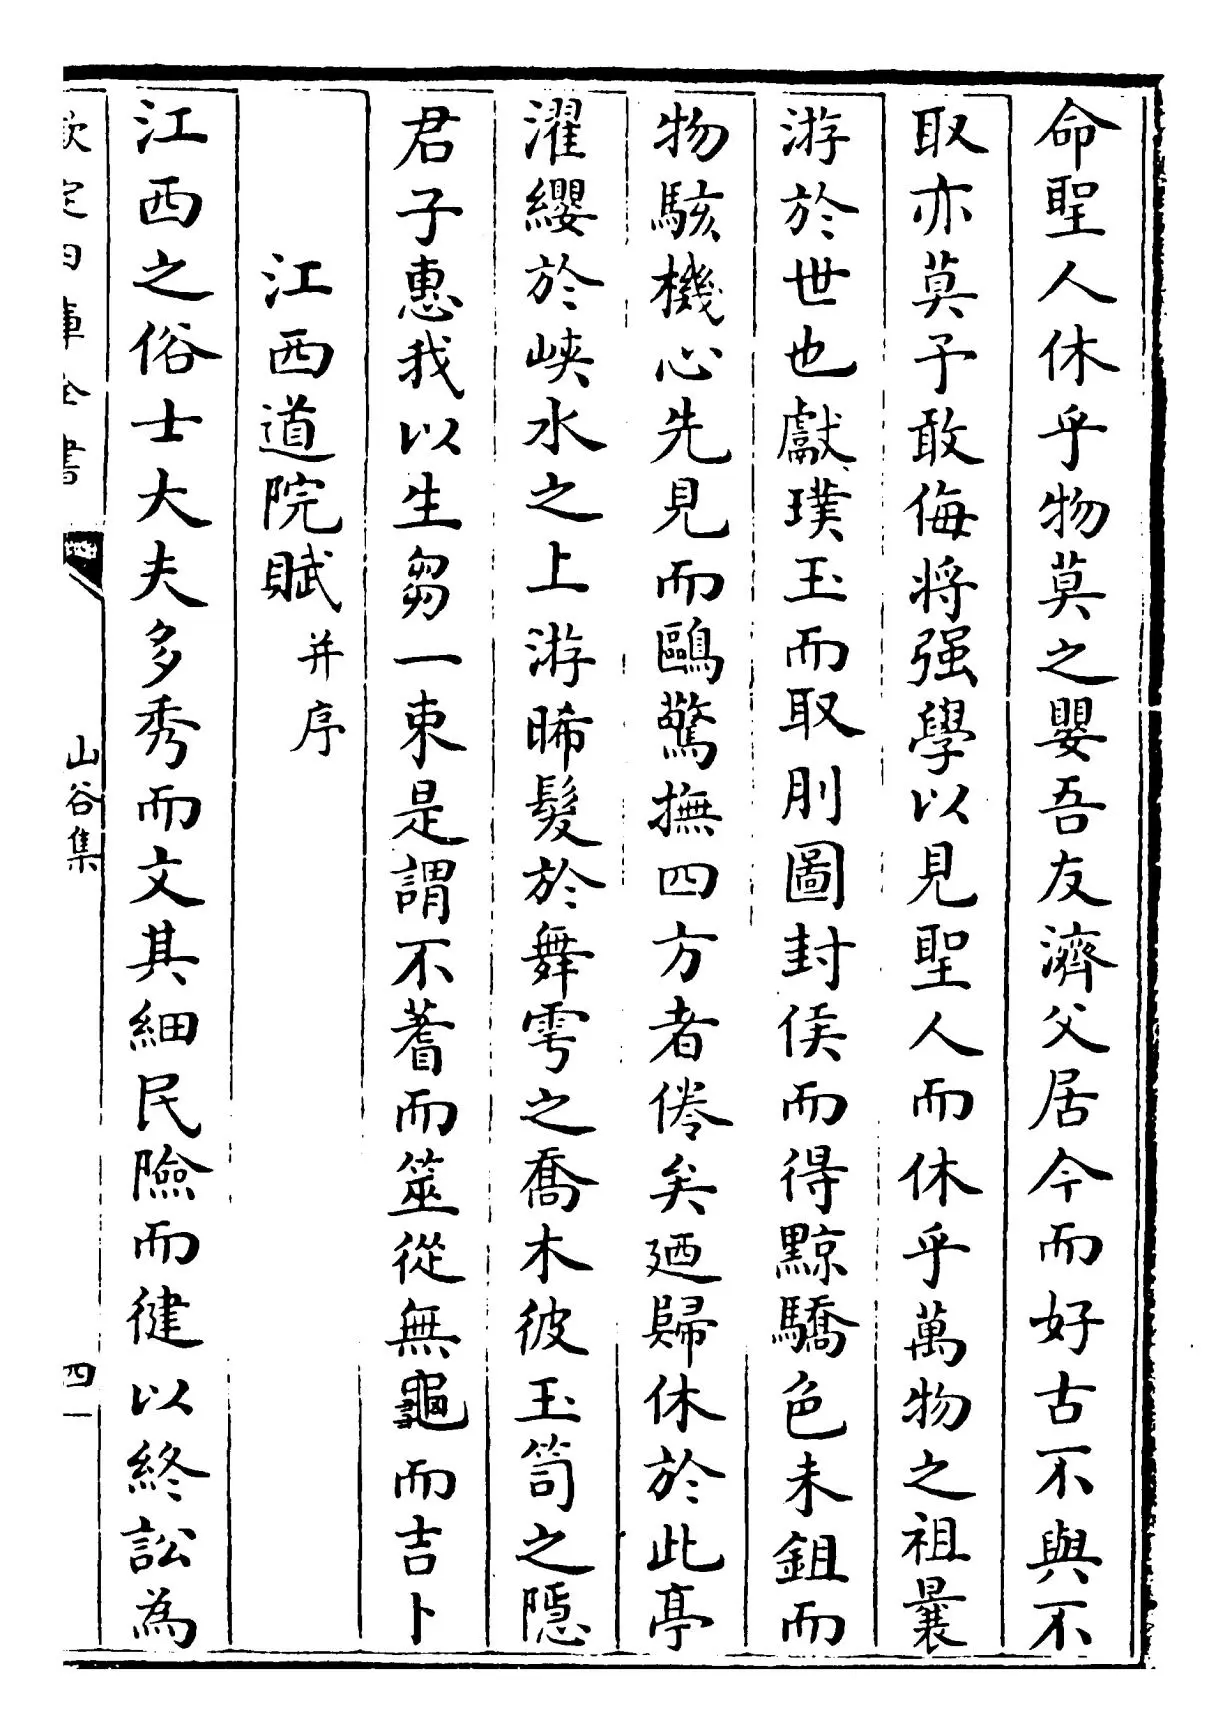 命聖人休乎物莫之嬰吾友濟父居今而好古不與不
取亦莫予敢侮將强學以見聖人而休乎萬物之祖曩
游於世也獻璞玉而取刖圖封侯而得黥驕色未鉏而
物駭機心先見而鷗驚撫四方者倦矣廼歸休於此亭
濯纓於峽水之上游晞髮於舞雩之喬木彼玉笥之隱
君子惠我以生芻一束是謂不蓍而筮從無龜而吉卜
江西道院賦并序
江西之俗士大夫多秀而文其細民險而健以終訟為
欽定四庫全書
山谷集
四